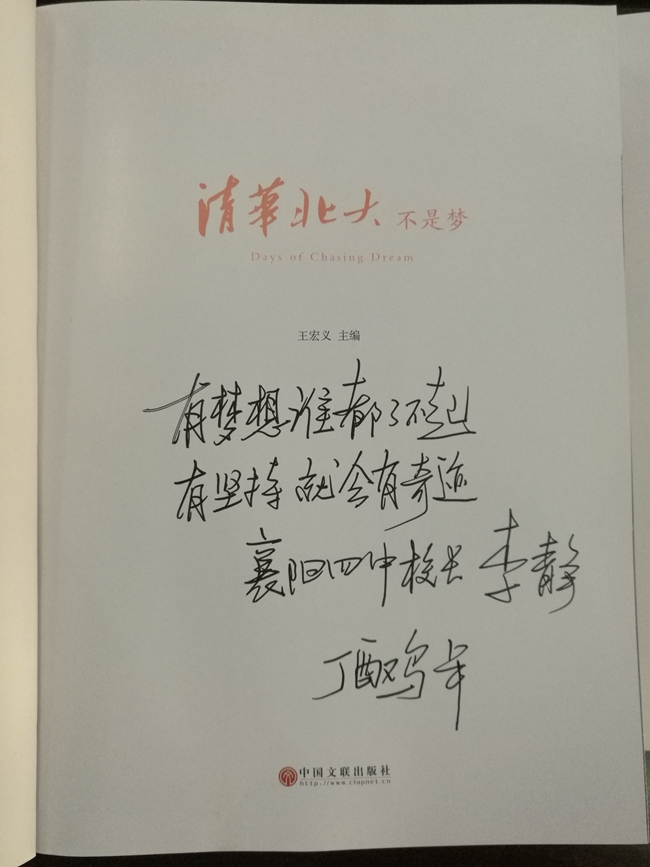 清華北大 不是梦
Days of Chasing Dream
王宏义 主编
有梦想谁都了不起
有坚持就会有奇迹
襄阳四中校长 李静
丁酉鸡年
中国文联出版社
http://www.clapnet.cn